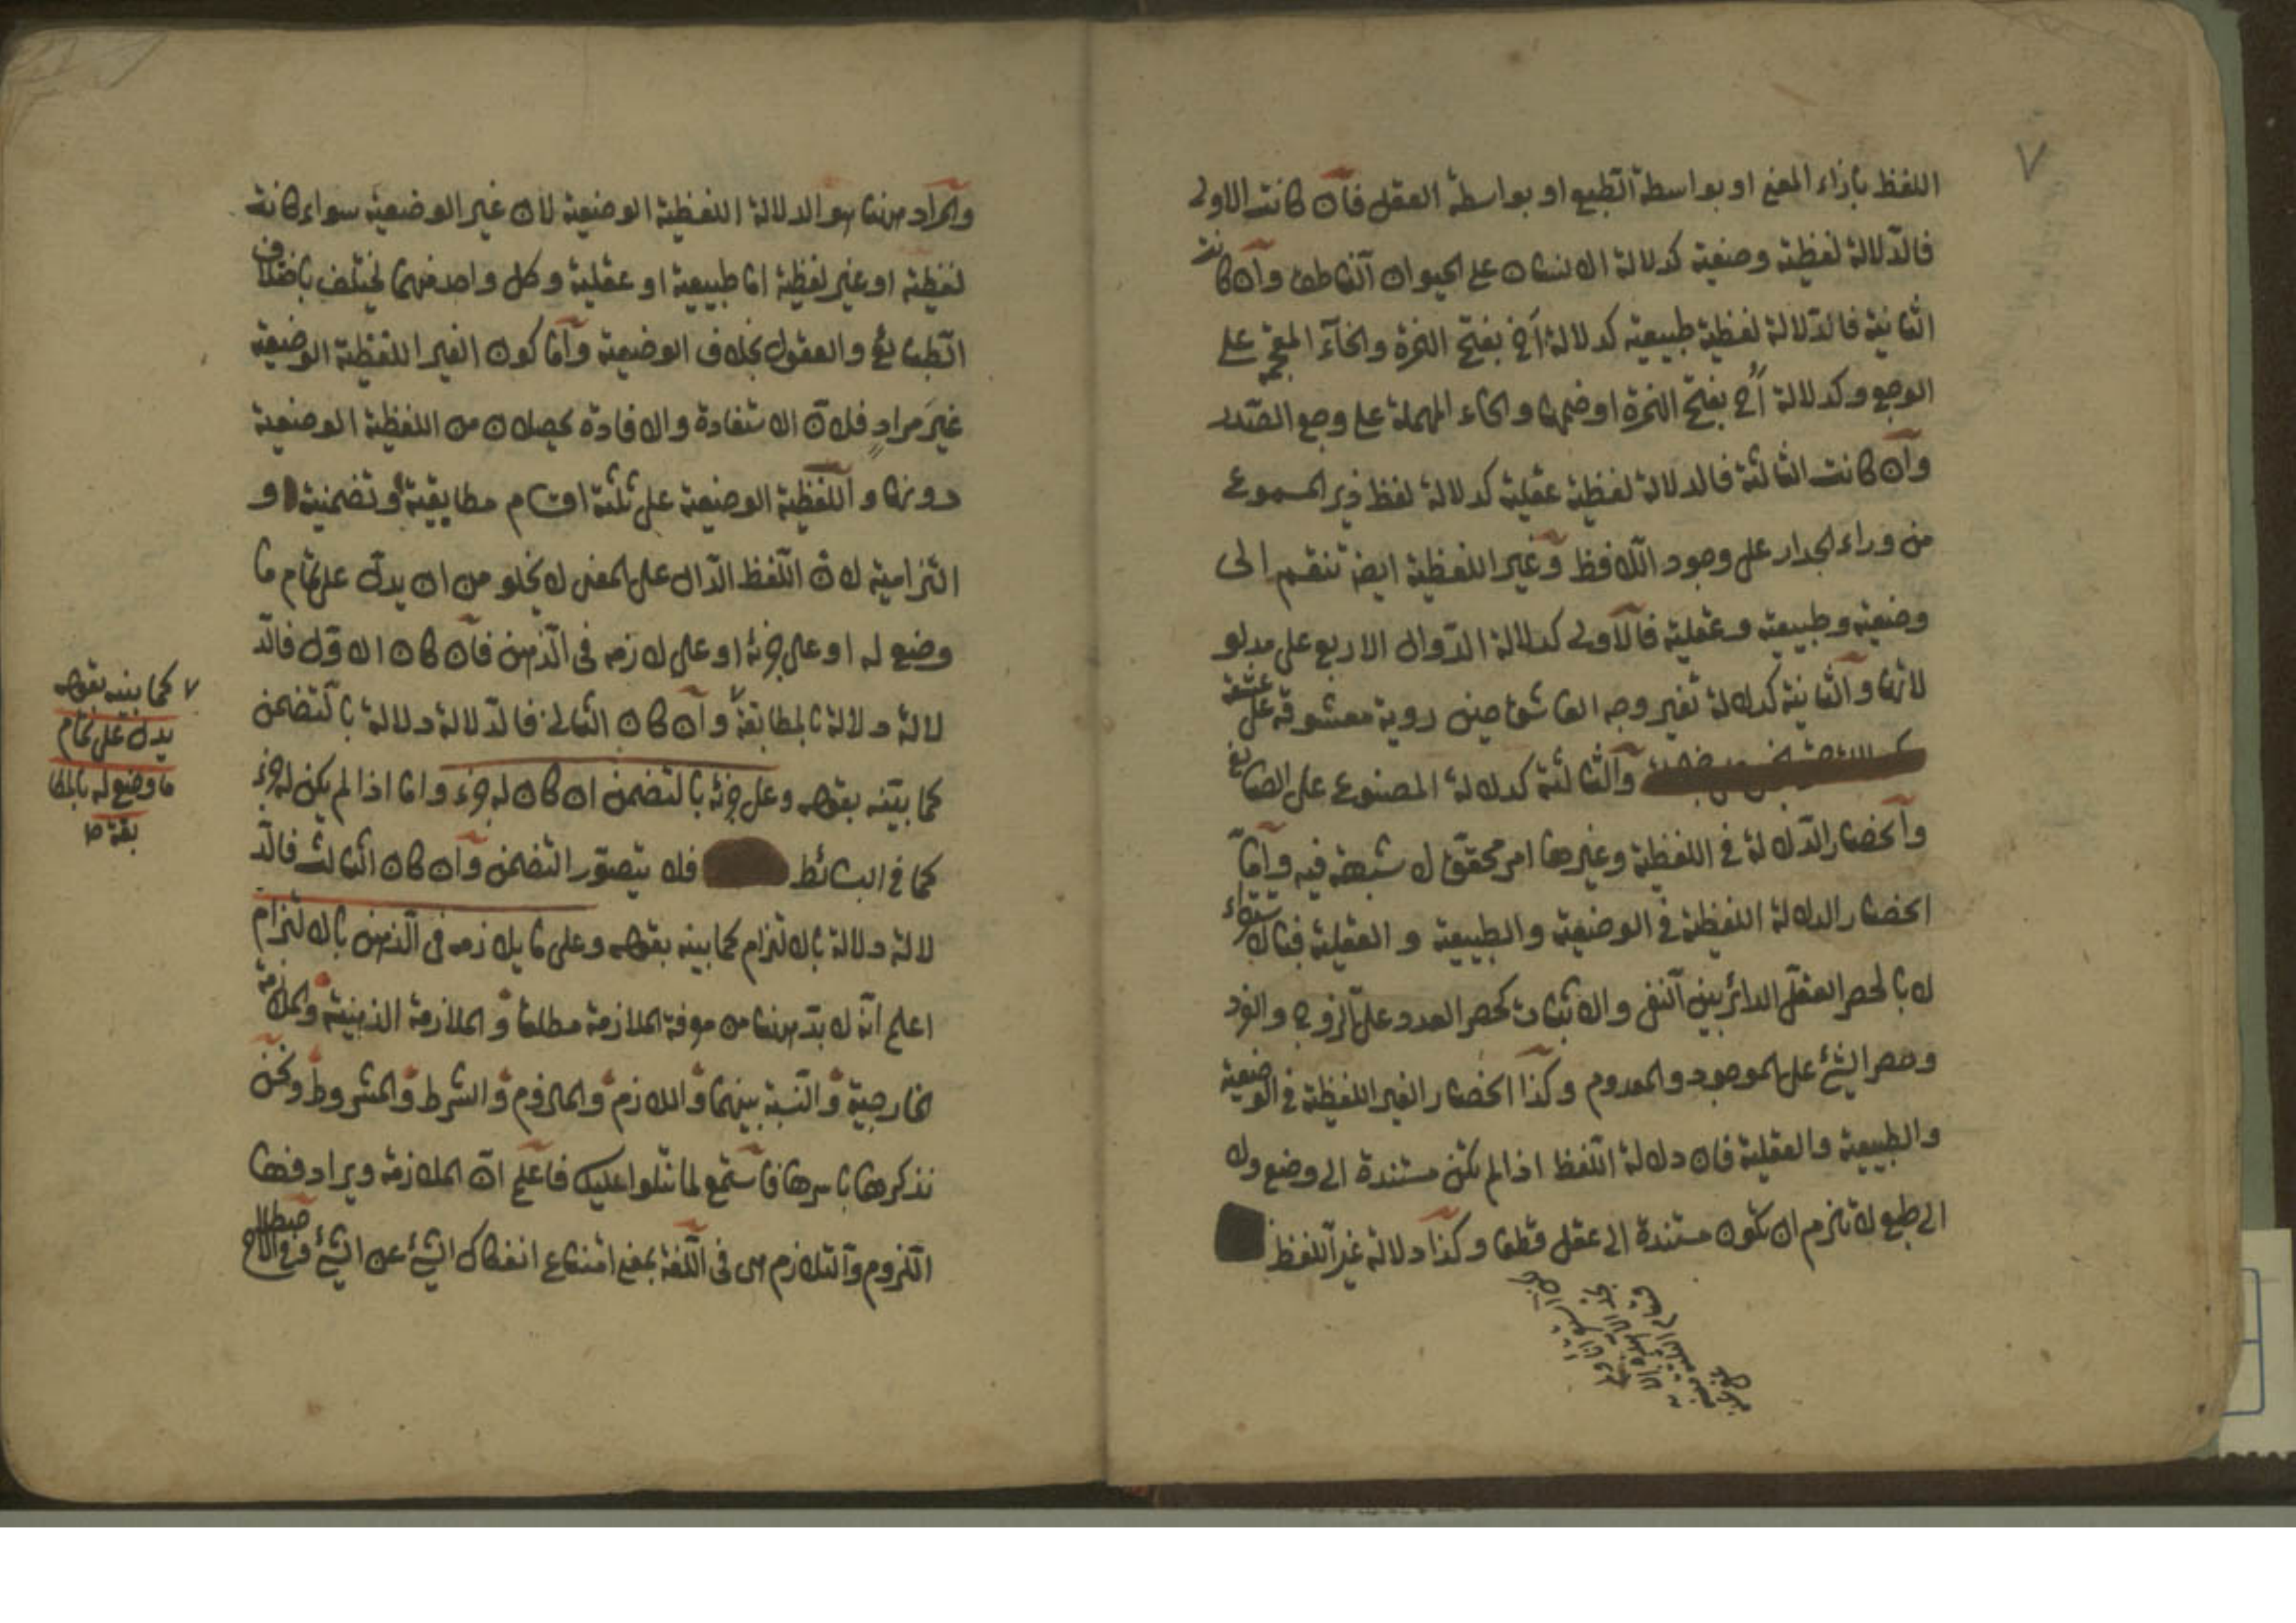 ٧
اللفظ بازاء المعنى او بواسطة الطبع او بواسطة العقل فان كانت الاولى
فالدلالة لفظية وضعية كدلالة الانسان على الحيوان الناطق وان كانت
الثانية فالدلالة لفظية طبيعية كدلالة اخ بفتح الهمزة والخاء المعجمة على
الوجع وكدلالة اح بفتح الهمزة او ضمها والحاء المهملة على وجع الصدر
وان كانت الثالثة فالدلالة لفظية عقلية كدلالة لفظ ديز المسموع
من وراء الجدار على وجود اللافظ وغير اللفظية ايضا تنقسم الى
وضعية وطبيعية وعقلية فالاولى كدلالة الدوال الاربع على مدلو
لاتها والثانية كدلالة تغير وجه العاشق حين روية معشوقه على عشقه
والثالثة كدلالة المصنوع على الصانع
وانحصار الدلالة في اللفظية وغيرها امر محقق لا شبهة فيه واما
انحصار الدلالة اللفظية في الوضعية والطبيعية و العقلية فبالاستقراء
لا بالحصر العقلي الدائر بين النفى والاثبات كحصر العدد على الزوج والفرد
وحصر الشئ على الموجود والمعدوم وكذا انحصار الغير اللفظية في الوضعية
والطبيعية والعقلية فان دلالة اللفظ اذا لم تكن مستندة الى وضع ولا
الى طبع لا تلزم ان تكون مستندة الى عقل قطعا وكذا دلالة غير اللفظ
والمراد ههنا هو الدلالة اللفظية الوضعية لان غير الوضعية سواء كانت
لفظية او غير لفظية اما طبيعية او عقلية وكل واحد منهما يختلف باختلاف
الطبائع والعقول بخلاف الوضعية واما كون الغير اللفظية الوضعية
غير مراد فلان الاستفادة والافادة يحصلان من اللفظية الوضعية
دونها واللفظية الوضعية على ثلثة اقسام مطابقية وتضمنية و
التزامية لان اللفظ الدال على المعنى لا يخلو من ان يدل على تمام ما
وضع له او على جزئه او على لازمه فى الذهن فان كان الاول فالد
لالة دلالة بالمطابقة ٧ وان كان الثانى فالدلالة دلالة بالتضمن
كما بينه بقوله وعلى جزئه بالتضمن ان كان له جزء واما اذا لم يكن له جزء
كما في البسائط فلا يتصور التضمن وان كان الثالث فالد
لالة دلالة بالالتزام كما بينه بقوله وعلى ما يلازمه فى الذهن بالالتزام
اعلم انه لا بد ههنا من معرفة الملازمة مطلقا والملازمة الذهنية والملازمة
الخارجية والنسبة بينهما واللازم والملزوم والشرط والمشروط ونحن
نذكرها باسرها فاستمع لما نتلوا عليك فاعلم ان الملازمة ويرادفها
اللزوم والتلازم هى فى اللغة بمعنى امتناع انفكاك الشئ عن الشئ وفي الاصطلاح
٧ كما بينه بقوله
يدل على تمام
ما وضع له بالمطا
بقة صح